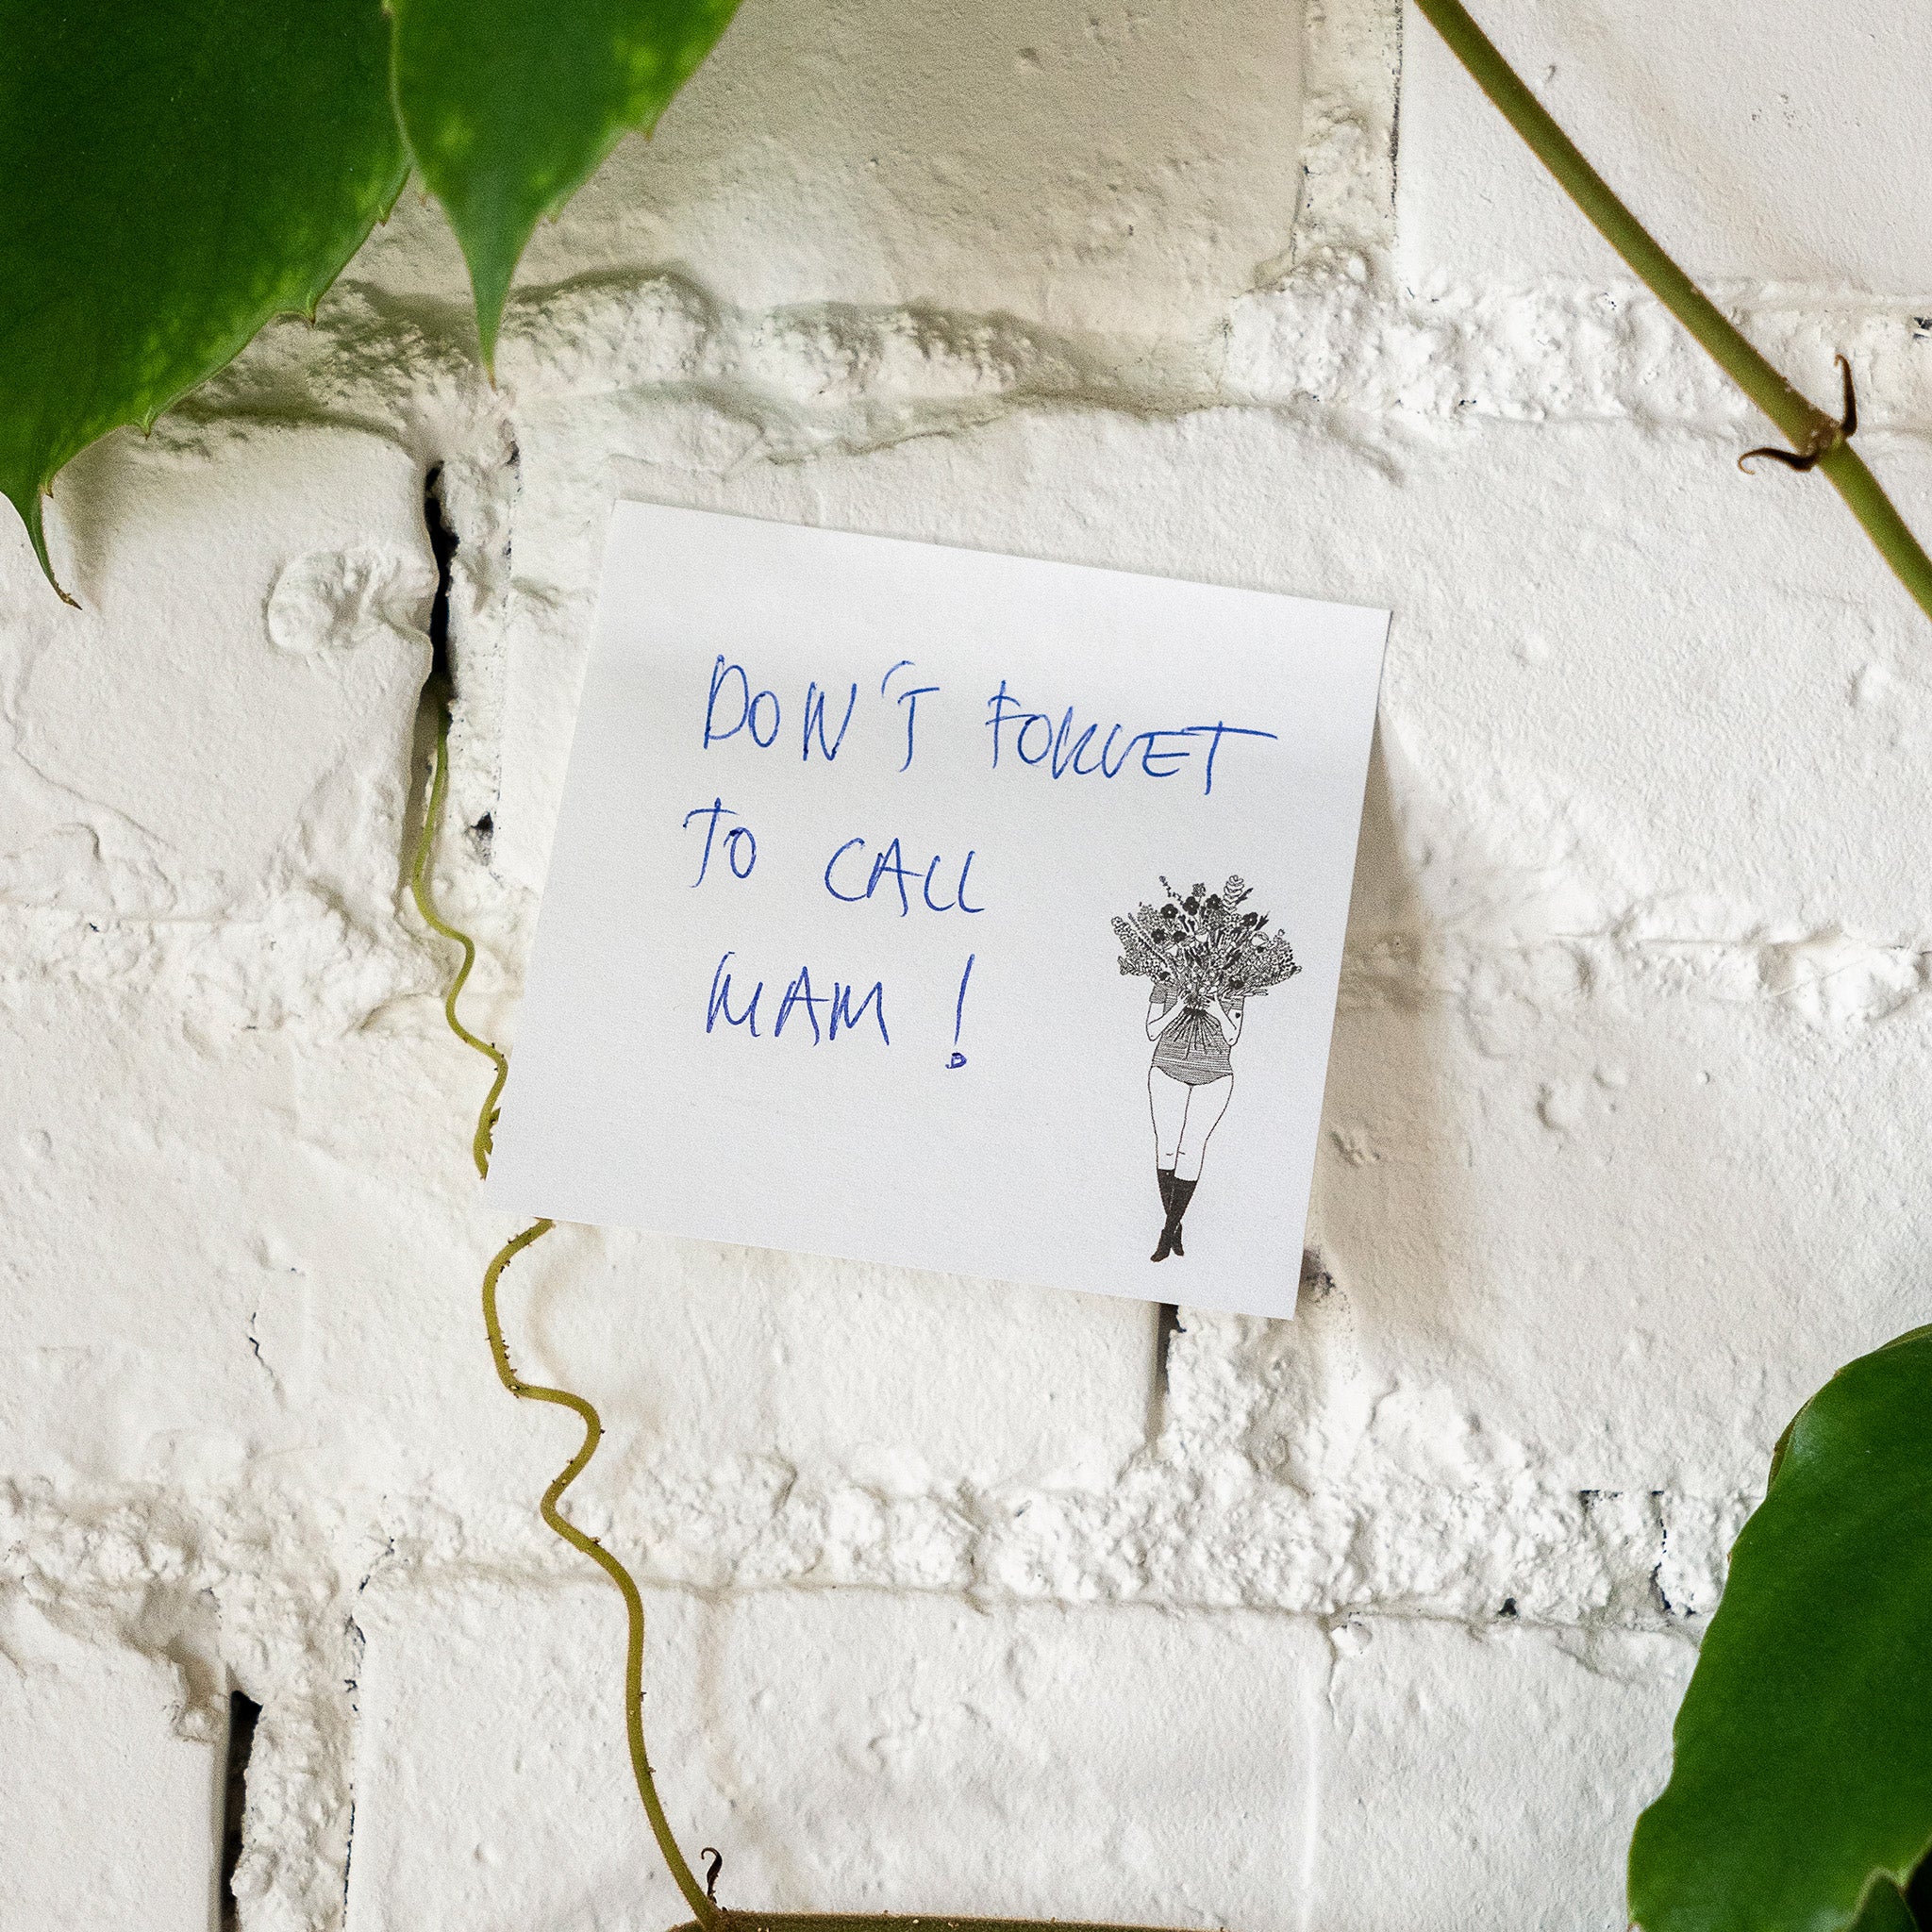 DON'T FORGET
TO CALL
MAM!